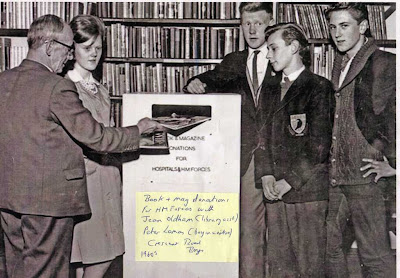 K & MAGAZINE
ONATIONS
FOR
HOSPITALS & HM FORCES
Book + mag donations
for HM Forces with
Jean Oldham (library asst)
Peter Lomas (boy in centre)
Crescent Road
1960s Boys